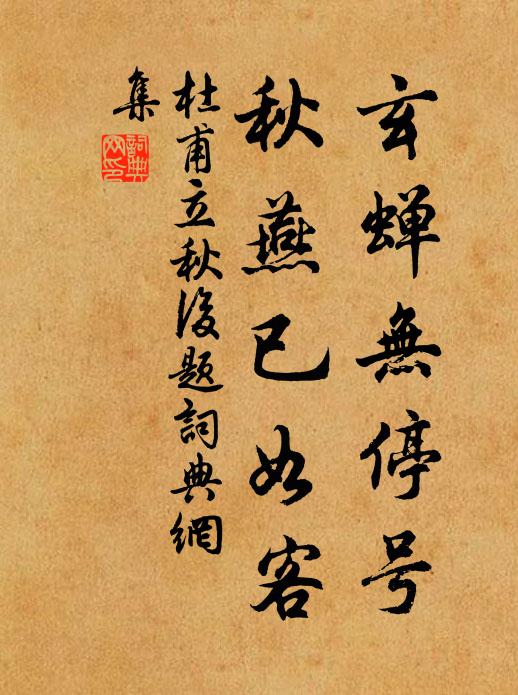 玄蝉無停号
秋燕已如客
杜甫立秋後题詞典網
集
詞典
网印